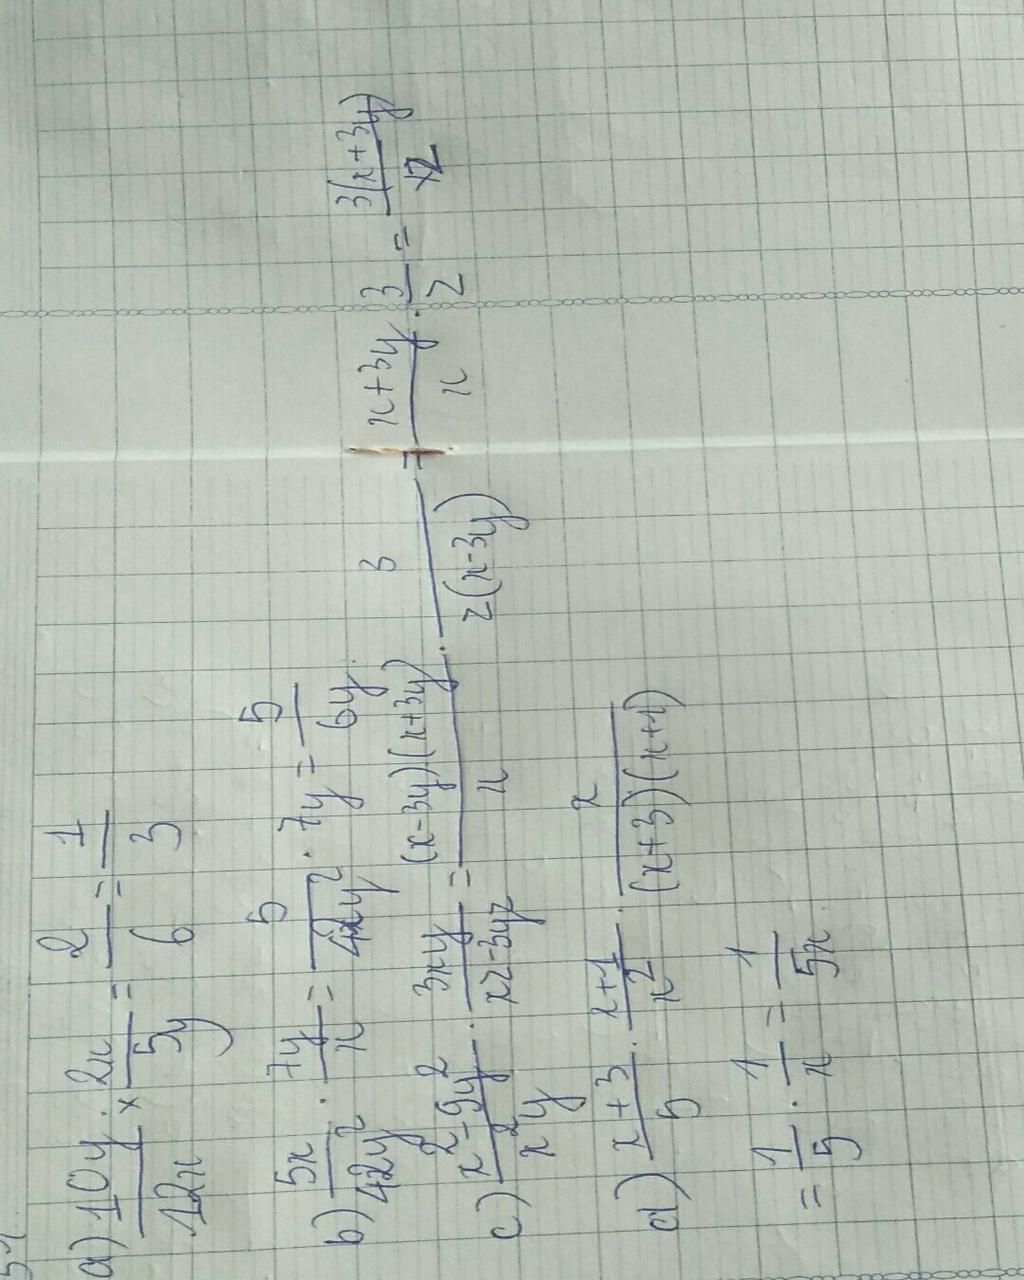 51
a) 10y/12x × 2x/5y = 2/6 = 1/3
b) 5x/42y² · 7y/x = 5/42y² · 7y = 5/6y
c) x²-9y²/x²y · 3xy/xz-3yz = (x-3y)(x+3y)/x · 3/z(x-3y) = x+3y/x · 3/z = 3(x+3y)/xz
d) x+3/5 · x+1/x² · x/(x+3)(x+1)
= 1/5 · 1/x = 1/5x